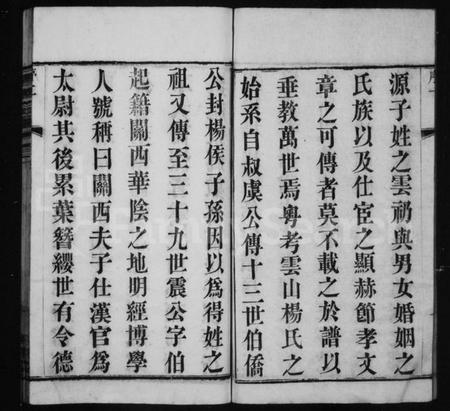 源子姓之雲礽與男女婚姻之
氏族以及仕宦之顯赫節孝文
章之可傳者莫不載之於譜以
垂教萬世焉粵考雲山楊氏之
始系自叔虞公傳十三世伯僑
公封楊侯子孫因以為得姓之
祖又傳至三十九世震公字伯
起籍關西華陰之地明經博學
人號稱曰關西夫子仕漢官為
太尉其後累葉簪纓世有令德